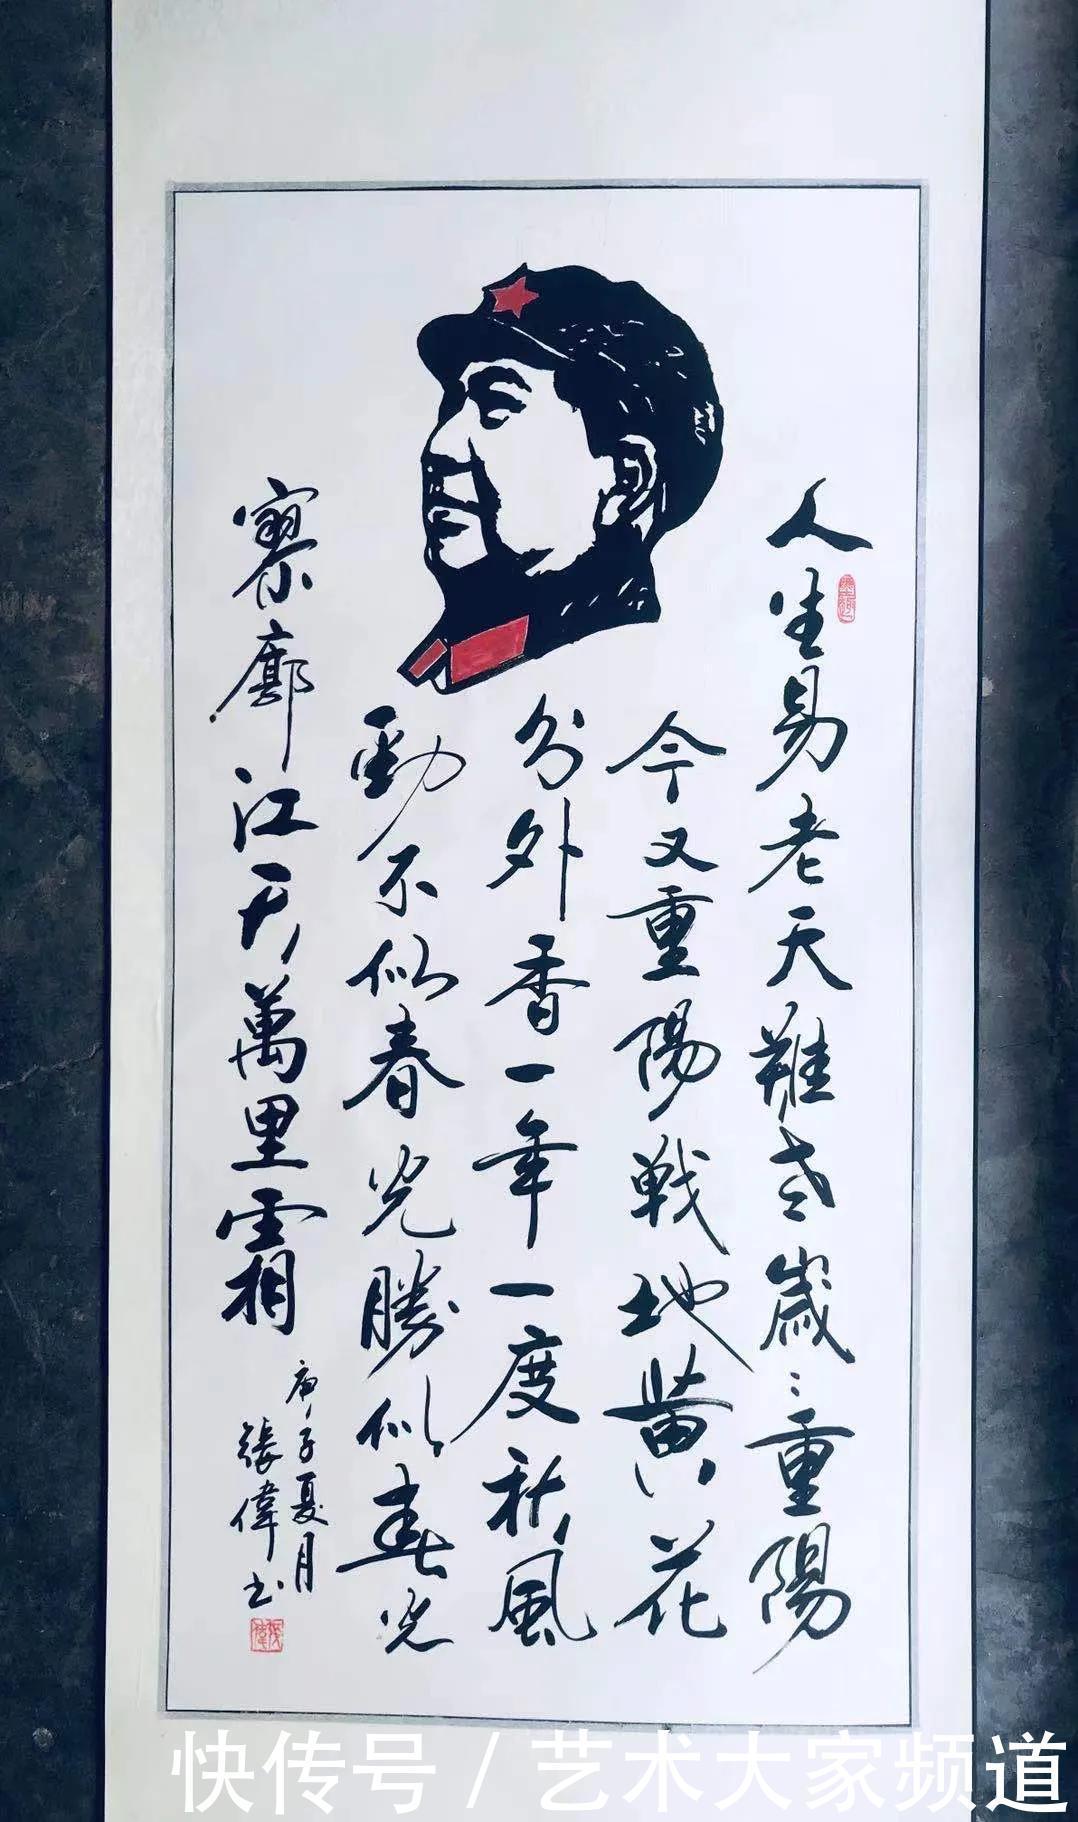 人生易老天難老歲〻重陽
今又重陽戰地黄花
分外香一年一度秋風
勁不似春光勝似春光
寥廓江天萬里霜
庚子夏月
張偉书
快传号/艺术大家频道